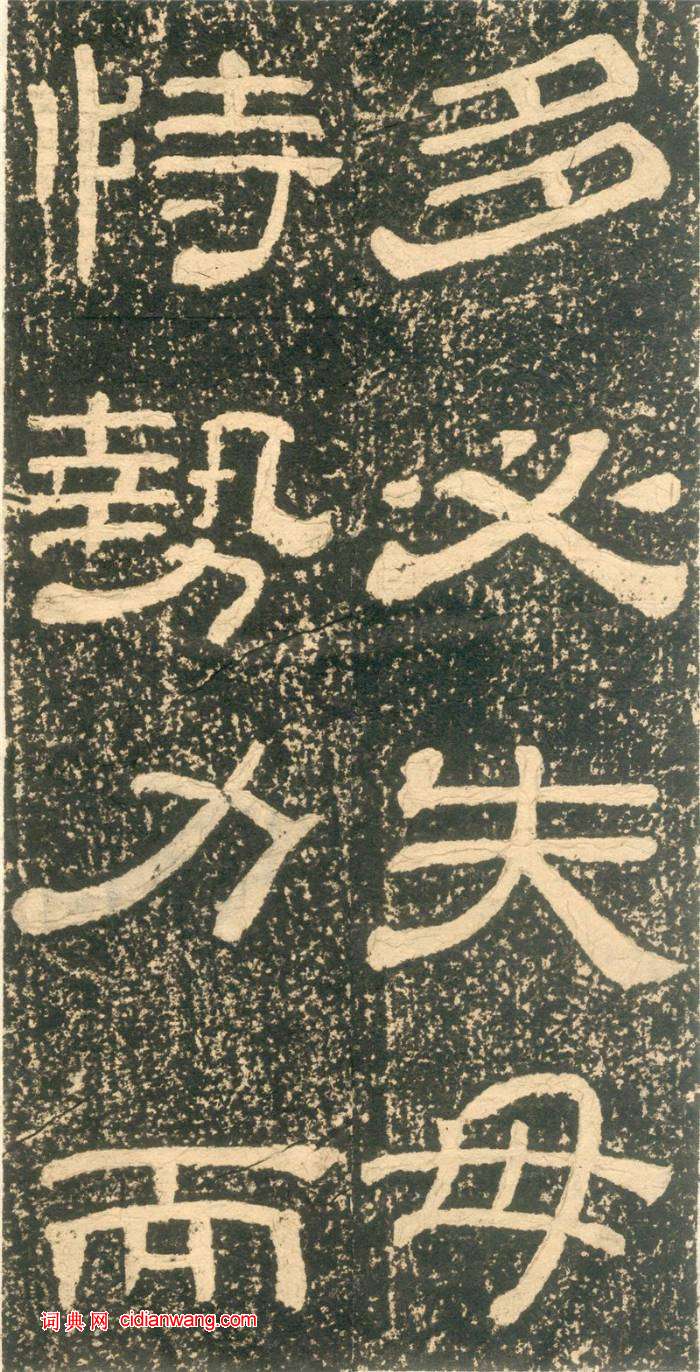 多必失毋
恃勢力而
词典网 cidianwang.com